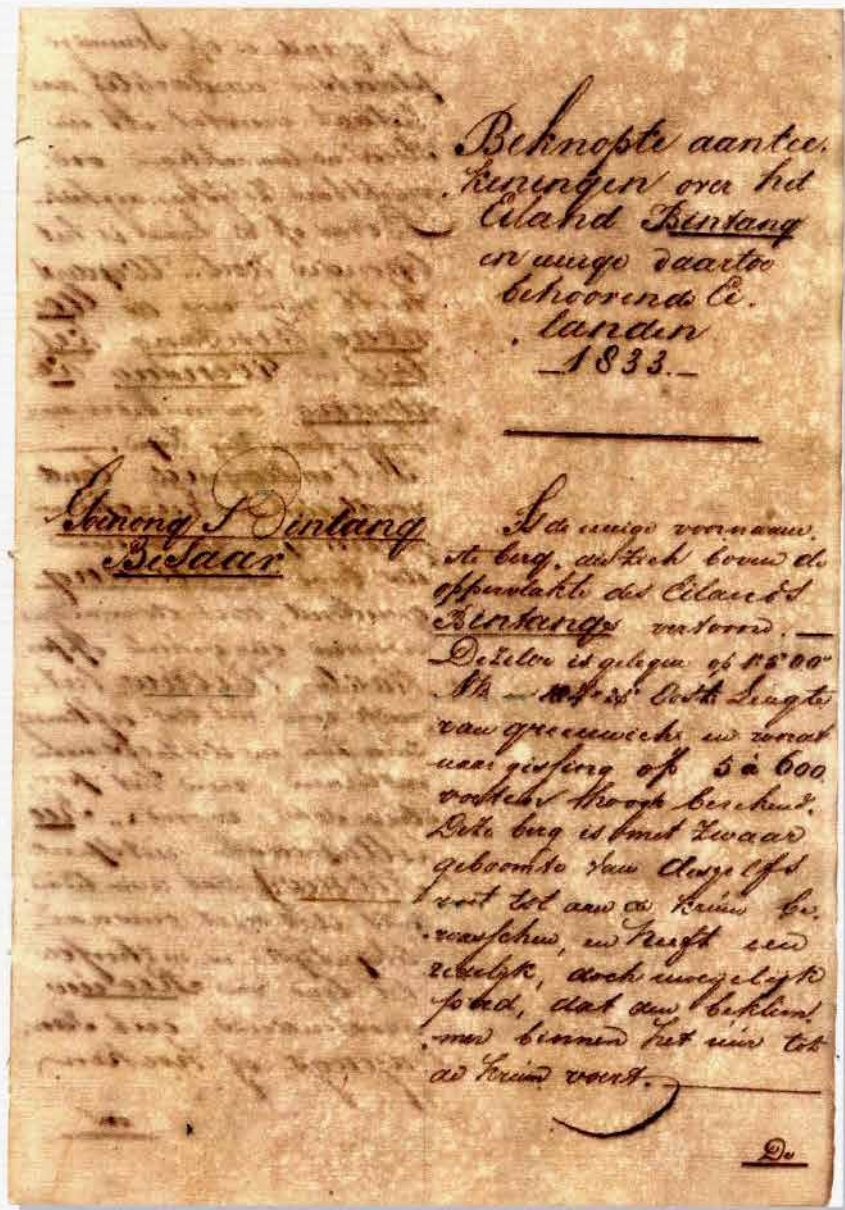 Beknopte aantee-
keningen over het
Eiland Bintang
en eenige daartoe
behoorende Ei-
landen
1833.
Goenong Bintang
Besaar
Is de eenige voornaam-
ste berg, die zich boven de
oppervlakte des Eilands
Bintang vertoond.
Dezelve is gelegen op
NB Ooster Lengte
van greenwich en wordt
naar gissing op 5 à 600
voeten hoogte
Deze berg is met zwaar
geboomte van deszelfs
voet tot aan de kruin be-
wasschen, en heeft een
doch moeyelyk
pad, dat den beklim-
mer binnen het uur tot
de kruin voert.
De